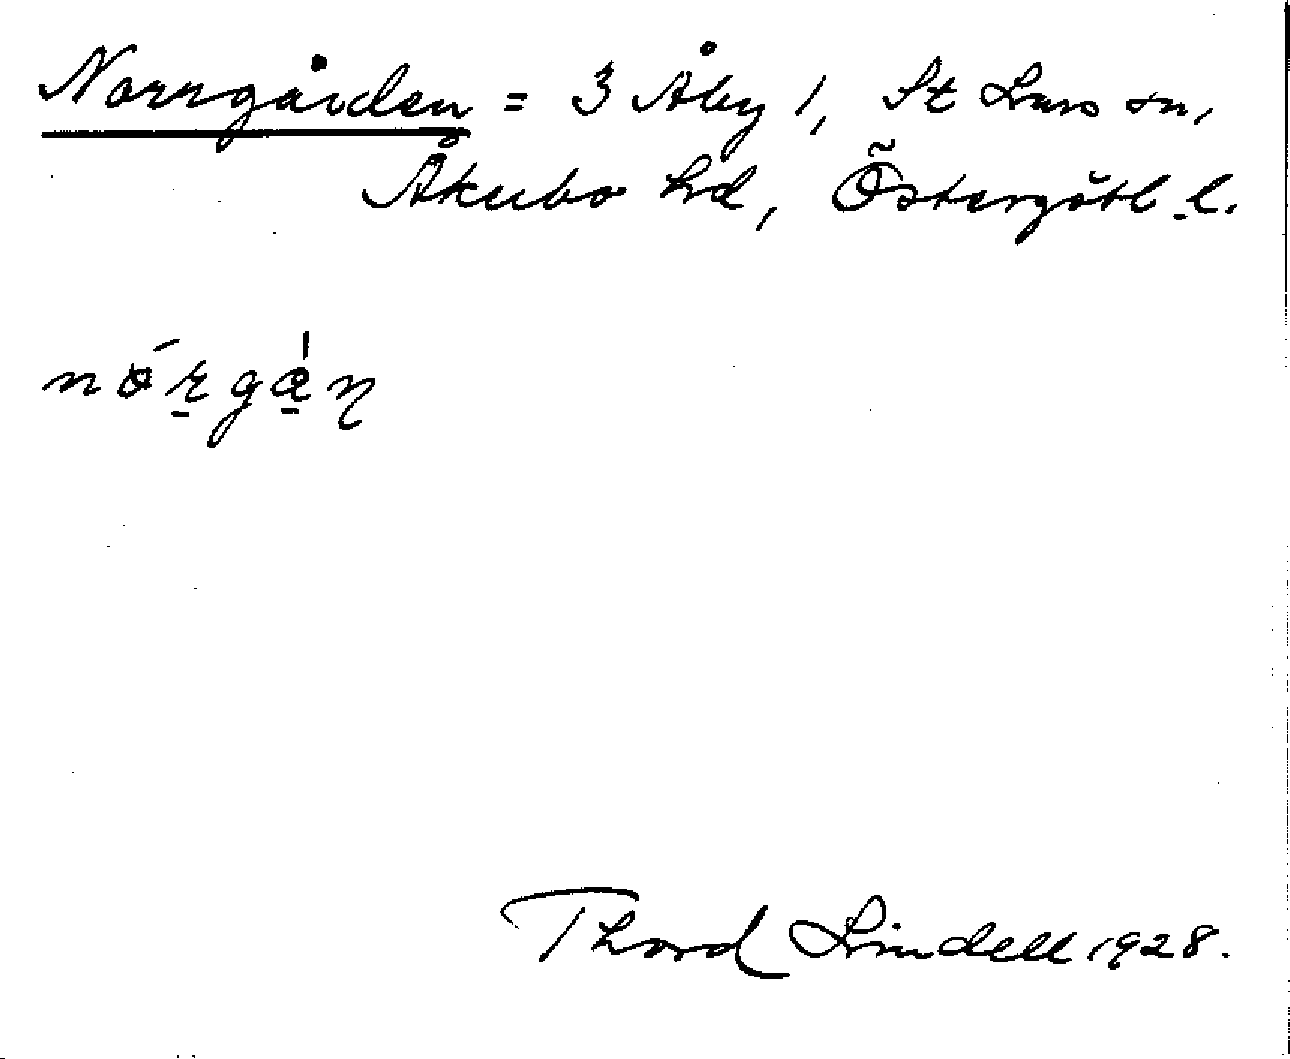 Norrgården = 3 Åby 1, St Lars sn,
Åkerbo hd, Östergötl. l.
Thord Lindell 1928.